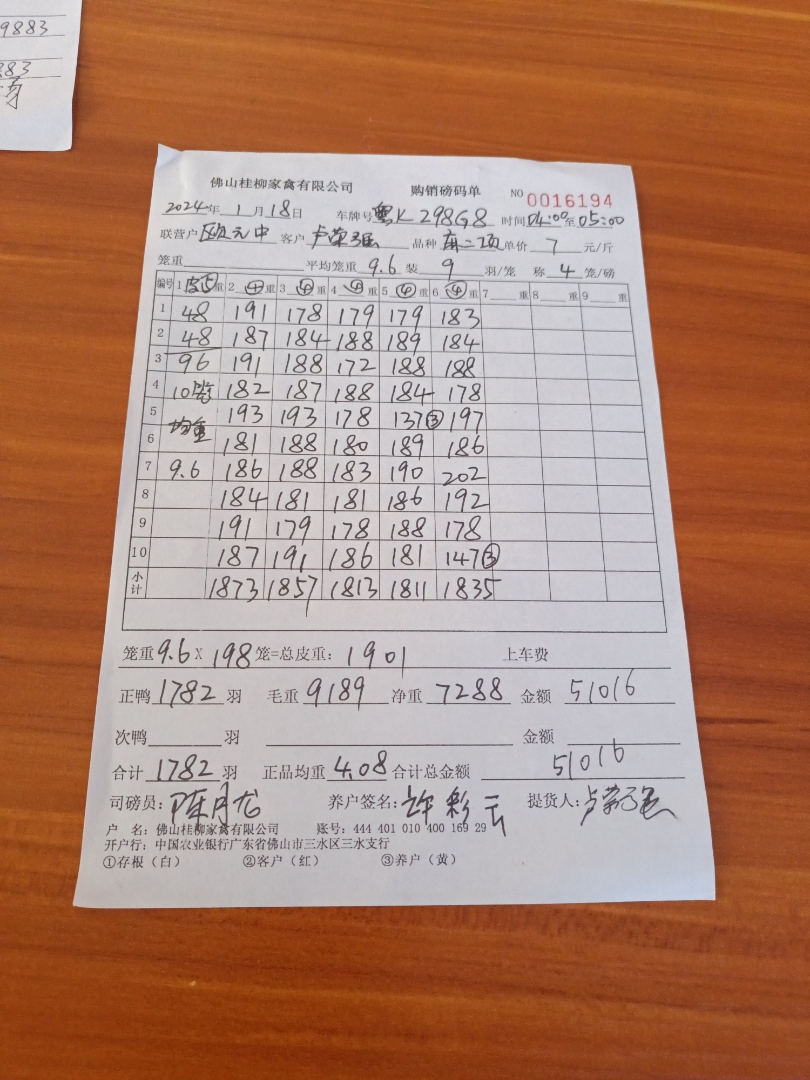 9883
883
佛山桂柳家禽有限公司 购销磅码单 NO 0016194
2024年 1月18日 车牌号 粤K298G8 时间 04:00至05:00
联营户 欧元中 客户 卢荣强 品种 麻二项 单价 7 元/斤
笼重 平均笼重 9.6 装 9 羽/笼 称 4 笼/磅
编号 1 皮⑤重 2 ④重 3 ④重 4 ④重 5 ④重 6 ④重 7 重 8 重 9 重
1 48 191 178 179 179 183
2 48 187 184 188 189 184
3 96 191 188 172 188 188
4 10笼 182 187 188 184 178
5 均重 193 193 178 137③ 197
6 181 188 180 189 186
7 9.6 186 188 183 190 202
8 184 181 181 186 192
9 191 179 178 188 178
10 187 191 186 181 147③
小计 1873 1857 1813 1811 1835
笼重 9.6 X 198 笼=总皮重: 1901 上车费
正鸭 1782 羽 毛重 9189 净重 7288 金额 51016
次鸭 羽 金额
合计 1782 羽 正品均重 4.08 合计总金额 51016
司磅员: 陈月龙 养户签名: 许彩云 提货人: 卢荣强
户 名: 佛山桂柳家禽有限公司 账号: 444 401 010 400 169 29
开户行: 中国农业银行广东省佛山市三水区三水支行
①存根(白) ②客户(红) ③养户(黄)